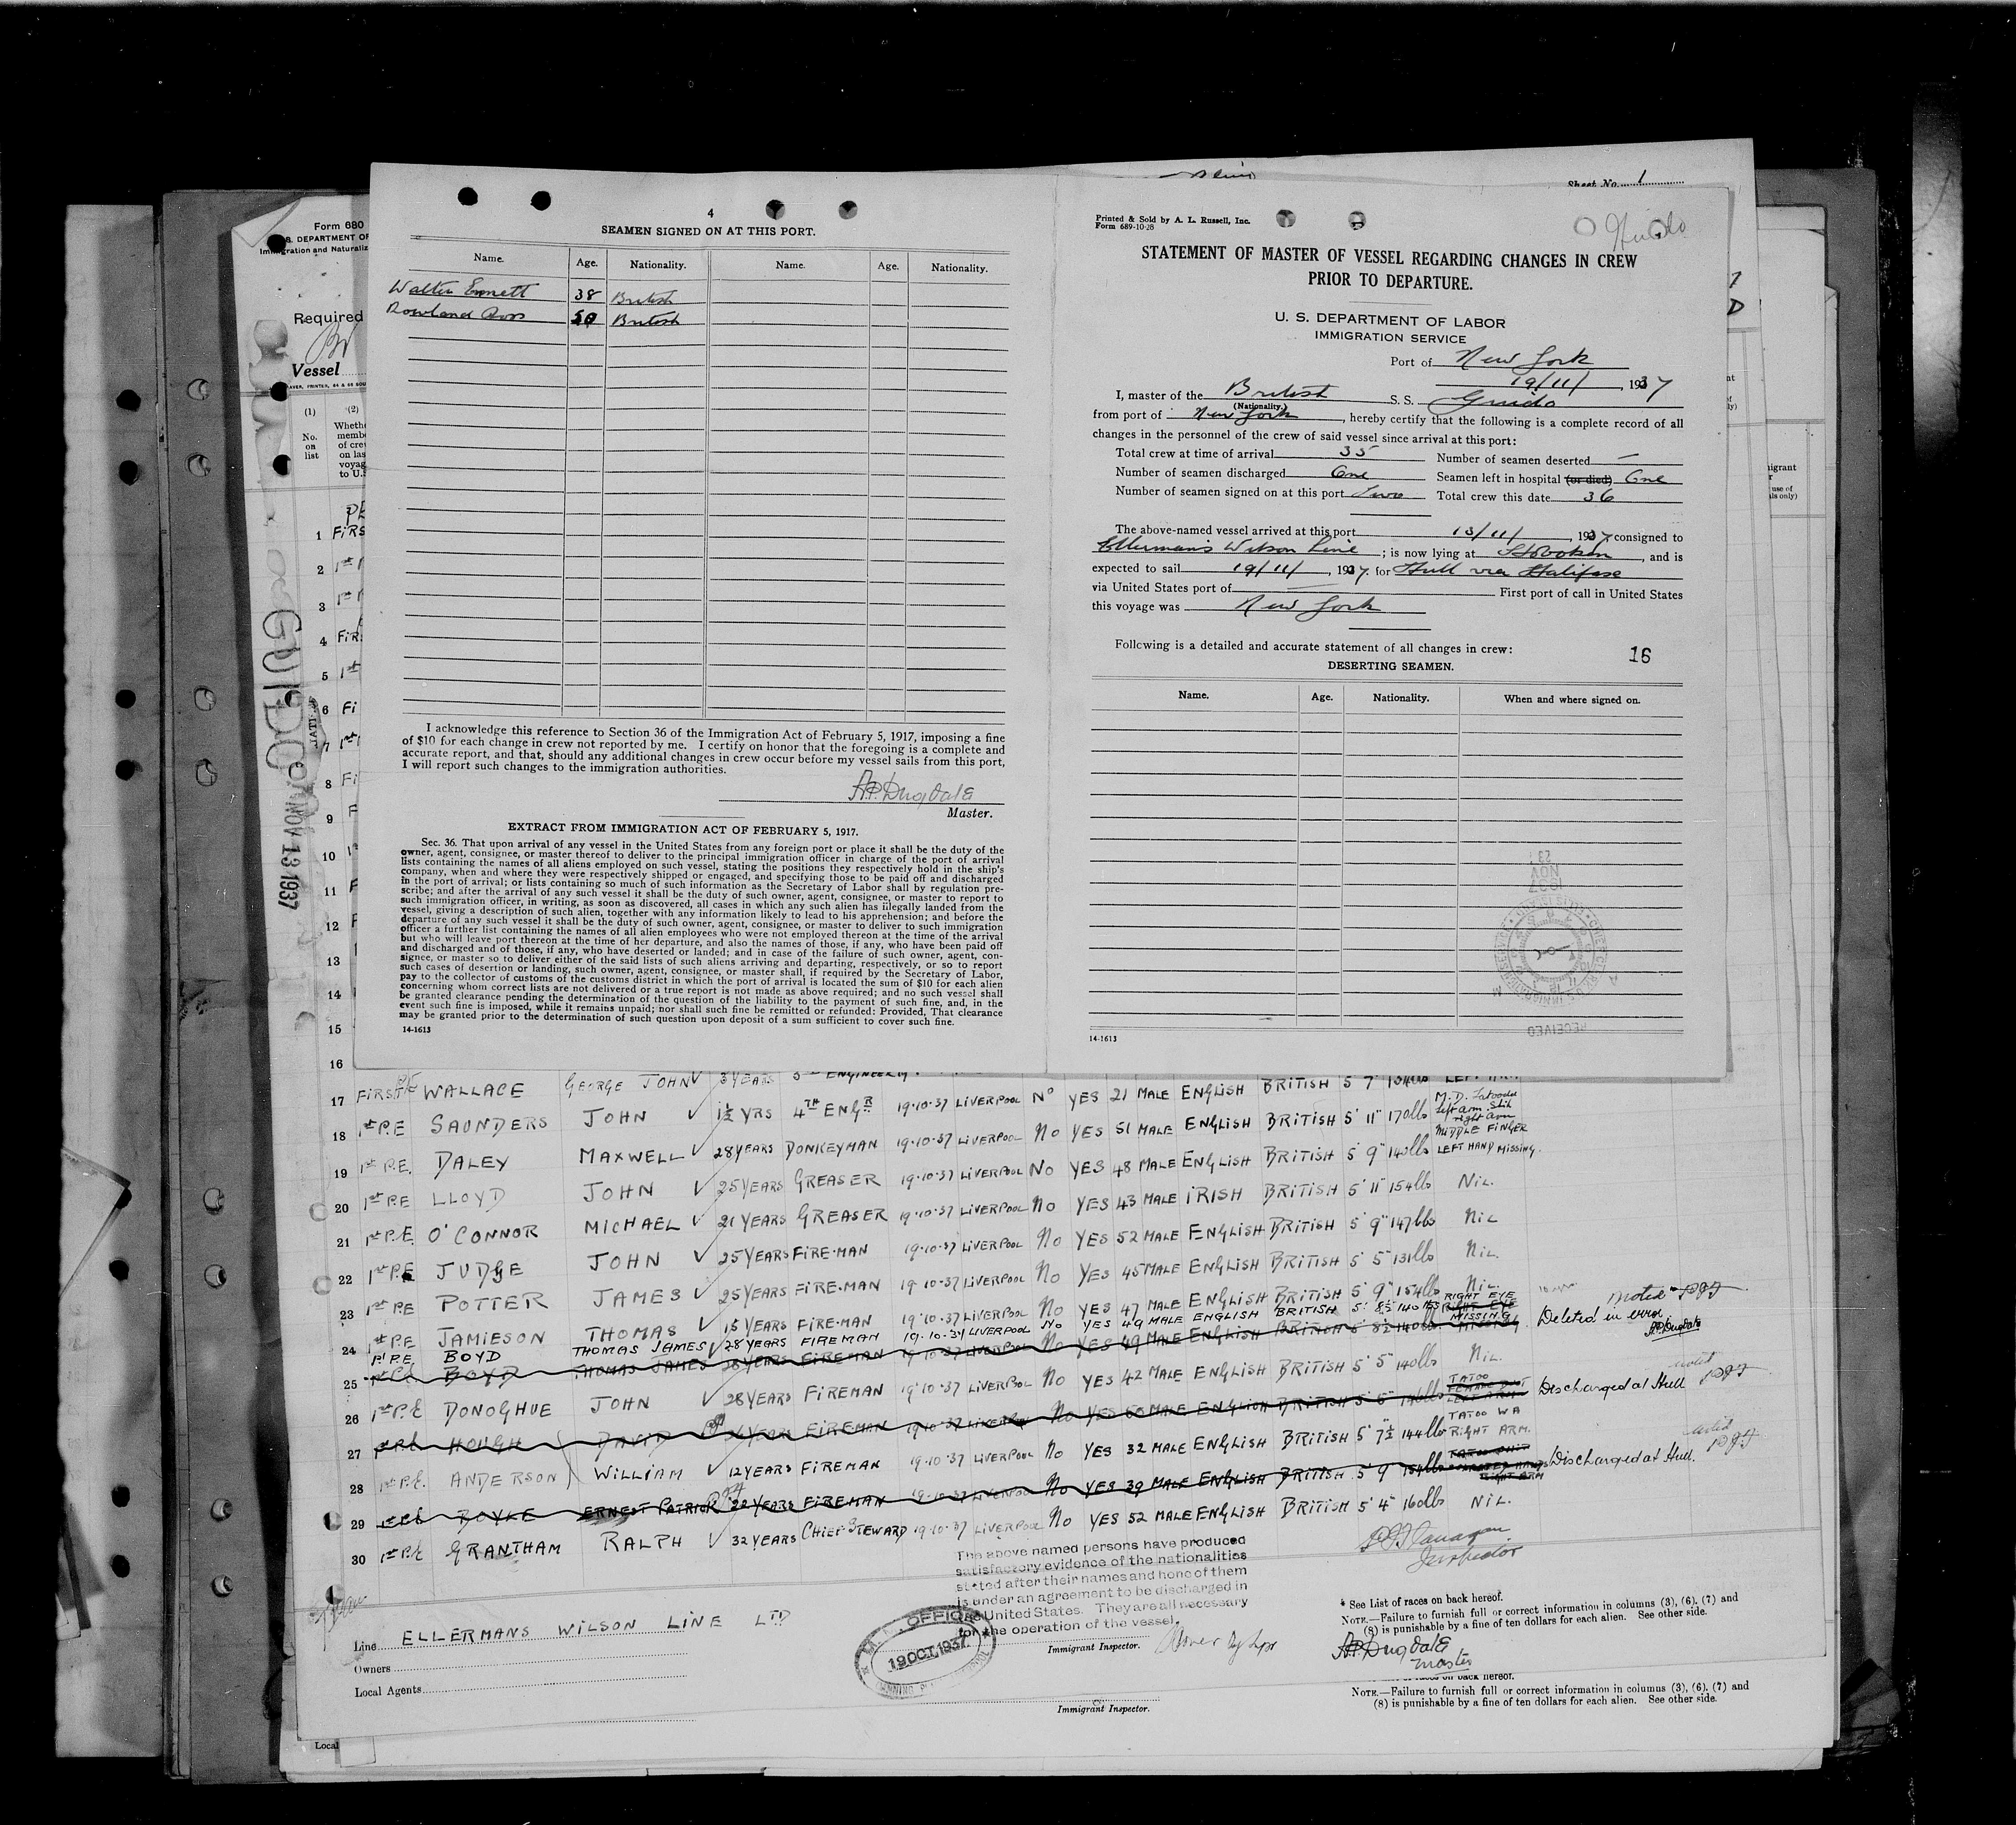 Form 680
S. DEPARTMENT OF
Immigration and Naturaliz
Required
Vessel
(1) (2)
No. on list
Wheth
memb
of cre
on las
voyag
to U.S
GUIDO
NOV 13 1937
4
SEAMEN SIGNED ON AT THIS PORT.
Name. Age. Nationality. Name. Age. Nationality.
Walter Emmett 38 British
Rowland 50 British
I acknowledge this reference to Section 36 of the Immigration Act of February 5, 1917, imposing a fine
of $10 for each change in crew not reported by me. I certify on honor that the foregoing is a complete and
accurate report, and that, should any additional changes in crew occur before my vessel sails from this port,
I will report such changes to the immigration authorities.
A.P. Dugdale
Master.
EXTRACT FROM IMMIGRATION ACT OF FEBRUARY 5, 1917.
Sec. 36. That upon arrival of any vessel in the United States from any foreign port or place it shall be the duty of the
owner, agent, consignee, or master thereof to deliver to the principal immigration officer in charge of the port of arrival
lists containing the names of all aliens employed on such vessel, stating the positions they respectively hold in the ship's
company, when and where they were respectively shipped or engaged, and specifying those to be paid off and discharged
in the port of arrival; or lists containing so much of such information as the Secretary of Labor shall by regulation pre-
scribe; and after the arrival of any such vessel it shall be the duty of such owner, agent, consignee, or master to report to
such immigration officer, in writing, as soon as discovered, all cases in which any such alien has illegally landed from the
vessel, giving a description of such alien, together with any information likely to lead to his apprehension; and before the
departure of any such vessel it shall be the duty of such owner, agent, consignee, or master to deliver to such immigration
officer a further list containing the names of all alien employees who were not employed thereon at the time of the arrival
but who will leave port thereon at the time of her departure, and also the names of those, if any, who have been paid off
and discharged and of those, if any, who have deserted or landed; and in case of the failure of such owner, agent, con-
signee, or master so to deliver either of the said lists of such aliens arriving and departing, respectively, or so to report
such cases of desertion or landing, such owner, agent, consignee, or master shall, if required by the Secretary of Labor,
pay to the collector of customs of the customs district in which the port of arrival is located the sum of $10 for each alien
concerning whom correct lists are not delivered or a true report is not made as above required; and no such vessel shall
be granted clearance pending the determination of the question of the liability to the payment of such fine, and, in the
event such fine is imposed, while it remains unpaid; nor shall such fine be remitted or refunded: Provided, That clearance
may be granted prior to the determination of such question upon deposit of a sum sufficient to cover such fine.
14-1613
Sheet No. 1
Printed & Sold by A. L. Russell, Inc.
Form 689-10-28
Guido
STATEMENT OF MASTER OF VESSEL REGARDING CHANGES IN CREW
PRIOR TO DEPARTURE.
U. S. DEPARTMENT OF LABOR
IMMIGRATION SERVICE
Port of New York
19/11/, 1937
I, master of the British S. S. Guido
(Nationality)
from port of New York, hereby certify that the following is a complete record of all
changes in the personnel of the crew of said vessel since arrival at this port:
Total crew at time of arrival 35 Number of seamen deserted —
Number of seamen discharged One Seamen left in hospital (or died) One
Number of seamen signed on at this port Two Total crew this date 36
The above-named vessel arrived at this port 13/11/, 1937, consigned to
Ellerman's Wilson Line; is now lying at Hoboken, and is
expected to sail 19/11/, 1937. for Hull via Halifax
via United States port of First port of call in United States
this voyage was New York
Following is a detailed and accurate statement of all changes in crew:
16
DESERTING SEAMEN.
Name. Age. Nationality. When and where signed on.
RECEIVED
14-1613
17 FIRST PE WALLACE GEORGE JOHN 3 YEARS ENGINEER BRITISH 5 7 LEFT ARM
18 1st P.E SAUNDERS JOHN 1½ YRS 4TH ENGR 19.10.37 LIVERPOOL NO YES 21 MALE ENGLISH BRITISH 5' 11" 170lbs M.D. Tatooed left arm right arm
19 1st P.E. DALEY MAXWELL 28 YEARS DONKEYMAN 19.10.37 LIVERPOOL NO YES 51 MALE ENGLISH BRITISH 5' 9" 140lbs MIDDLE FINGER LEFT HAND MISSING.
20 1st P.E LLOYD JOHN 25 YEARS GREASER 19.10.37 LIVERPOOL NO YES 48 MALE ENGLISH BRITISH 5' 11" 154lbs NIL.
21 1st P.E. O'CONNOR MICHAEL 21 YEARS GREASER 19.10.37 LIVERPOOL NO YES 43 MALE IRISH BRITISH 5' 9" 147lbs NIL
22 1st P.E JUDGE JOHN 25 YEARS FIRE-MAN 19.10.37 LIVERPOOL NO YES 52 MALE ENGLISH BRITISH 5' 5" 131lbs NIL.
23 1st P.E POTTER JAMES 25 YEARS FIRE-MAN 19.10.37 LIVERPOOL NO YES 45 MALE ENGLISH BRITISH 5' 9" 154lbs NIL.
24 1st P.E. JAMIESON THOMAS 15 YEARS FIRE-MAN 19.10.37 LIVERPOOL NO YES 47 MALE ENGLISH BRITISH
1st P.E. BOYD THOMAS JAMES 28 YEARS FIREMAN 19.10.37 LIVERPOOL NO YES 49 MALE ENGLISH BRITISH 5' 8½ 140 lbs RIGHT EYE MISSING
25 1st P.E BOYD THOMAS JAMES 28 YEARS FIREMAN 19.10.37 LIVERPOOL NO YES 49 MALE ENGLISH BRITISH 5' 8½ 140lbs RIGHT EYE MISSING Deleted in error A.P. Dugdale noted
26 1st P.E DONOGHUE JOHN 28 YEARS FIREMAN 19.10.37 LIVERPOOL NO YES 42 MALE ENGLISH BRITISH 5' 5" 140lbs NIL.
27 1st P.E HOUGH DAVID YEARS FIREMAN 19.10.37 LIVERPOOL NO YES MALE ENGLISH BRITISH TATOO Discharged at Hull noted
28 1st P.E. ANDERSON WILLIAM 12 YEARS FIREMAN 19.10.37 LIVERPOOL NO YES 32 MALE ENGLISH BRITISH 5' 7½ 144lbs TATOO WA RIGHT ARM.
29 1st P.E BOYLE ERNEST PATRICK 22 YEARS FIREMAN 19.10.37 LIVERPOOL NO YES 39 MALE ENGLISH BRITISH 5' 9 154lbs RIGHT ARM Discharged at Hull.
30 1st P.E GRANTHAM RALPH 32 YEARS CHIEF STEWARD 19.10.37 LIVERPOOL NO YES 52 MALE ENGLISH BRITISH 5' 4" 160lbs NIL.
Inspector
The above named persons have produced
satisfactory evidence of the nationalities
stated after their names and none of them
is under an agreement to be discharged in
the United States. They are all necessary
for the operation of the vessel.
19 OCT. 1937
Line ELLERMANS WILSON LINE LTD
Owners
Local Agents
Immigrant Inspector.
* See List of races on back hereof.
NOTE.—Failure to furnish full or correct information in columns (3), (6), (7) and
(8) is punishable by a fine of ten dollars for each alien. See other side.
A.P. Dugdale
master
Immigrant Inspector.
NOTE.—Failure to furnish full or correct information in columns (3), (6), (7) and
(8) is punishable by a fine of ten dollars for each alien. See other side.
Local